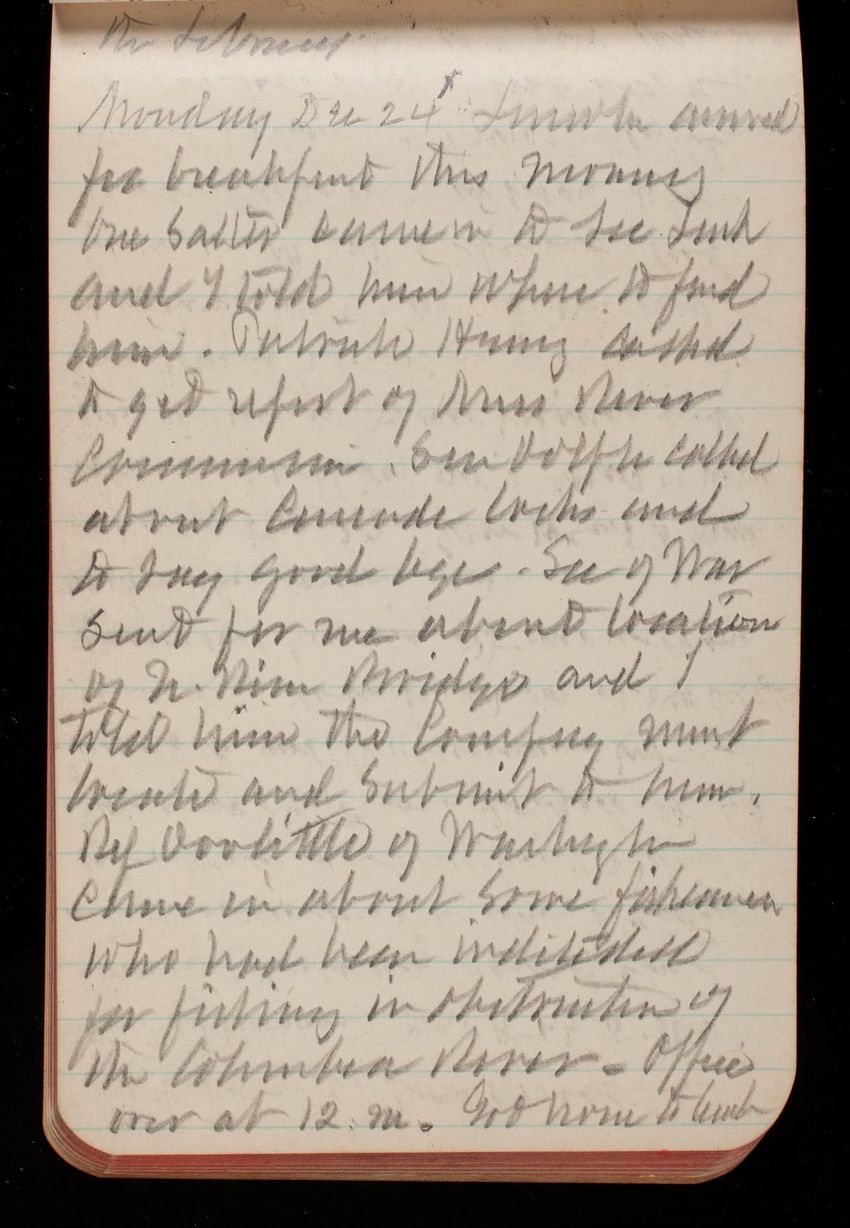 the
Monday Dec 24 Lincoln arrived
for breakfast this morning
One Salter came in to see
and I told him where to find
him. Patrick Henry called
to get report of Miss River
Commission. Sen Dolph called
about Cascade locks and
to say good bye. Sec of War
sent for me about location
of N. River Bridge and I
told him the Company must
locate and submit to him.
Rep Doolittle of Washington
came in about some fishermen
who had been indicted
for fishing in obstruction of
the Columbia River - Office
over at 12 m. Got home to lunch